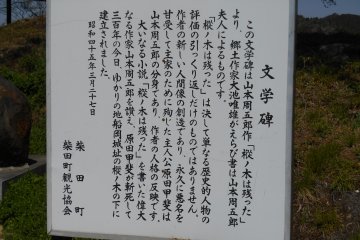 文学碑
この文学碑は山本周五郎作「樅ノ木は残った」
より、郷土作家大池唯雄がえらび書は山本周五郎
夫人によるものです。
「樅ノ木は残った」は決して単なる歴史的人物の
評価の引っくり返しだけのものではありません。
作者の新しい人間像の創造であり、永久に悪名を
甘受して主家のために殉じた主人公原田甲斐は
山本周五郎の分身であり、作者の人格の反映です。
大いなる小説「樅ノ木は残った」を書いた偉大
なる作家山本周五郎を讃え、原田甲斐が斬死して
三百年の今日、ゆかりの地船岡城址の樅ノ木の下に
建立されました。
昭和四十五年三月二十七日
柴田町
柴田町観光協会